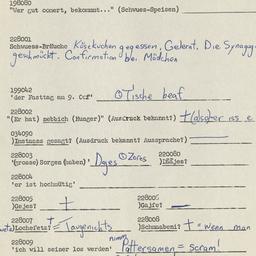 198080
"Wer gut oonert, bekommt..." (Schwues-Speisen)
228001
Schwuess-Bräuche Käsekuchen gegessen, Gelernt. Die Synagoge
geschmückt. Confirmation bei Mädchen
199042
"der Fasttag am 9. Oof" Tische beaf
228002
"(Er hat) nebbich (Hunger)" (Ausdruck bekannt?) +
034090
)Instanss gesagt? (Ausdruck bekannt? Aussprache?)
228003 220080
'(grosse)Sorgen (haben)' Dages Zores )DEEjes?
228004
'er ist hochmütig'
228005 228006
)Gajes? + )Gajfe?
228007 228008
)Lochefets? = Taugenichts )Schmabeni? + = wenn man
228009 nimm
'ich will seiner los werden' Pattersamen = scram!